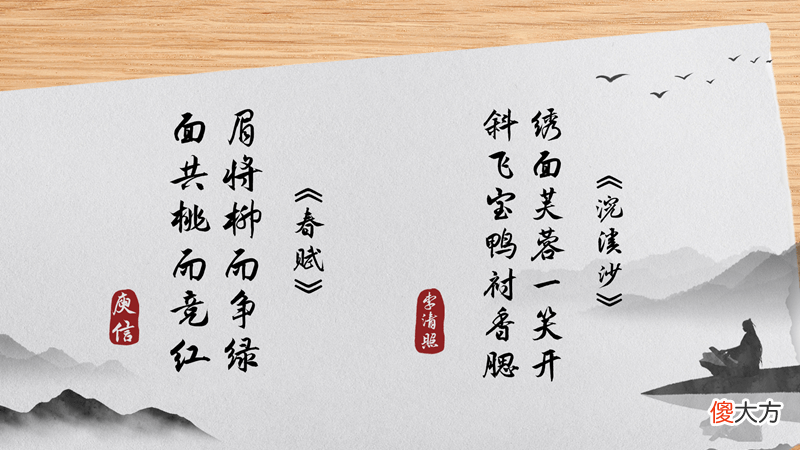 《浣溪沙》
绣面芙蓉一笑开
斜飞宝鸭衬香腮
李清照
《春赋》
眉将柳而争绿
面共桃而竞红
庾信
傻大方